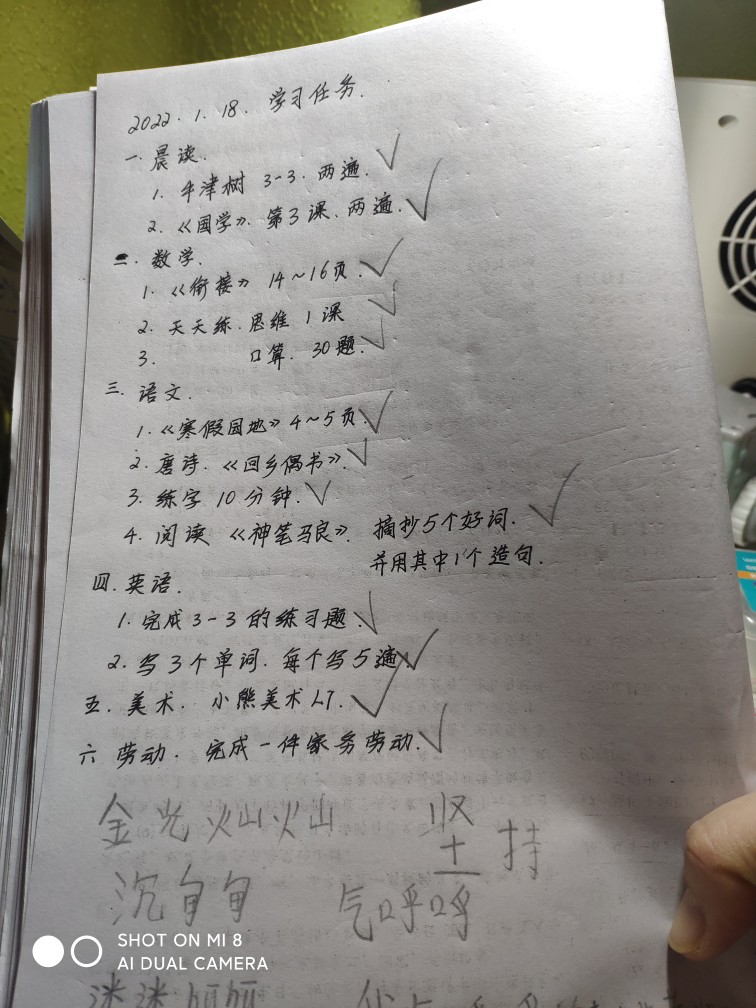 2022.1.18.学习任务.
一.晨读.
1.牛津树 3-3.两遍.✓
2.《国学》.第3课.两遍.✓
二.数学.
1.《衔接》 14~16页.✓
2.天天练.思维 1课 ✓
3. 口算.30题.✓
三.语文.
1.《寒假园地》4~5页.✓
2.唐诗.《回乡偶书》.✓
3.练字10分钟.✓
4.阅读《神笔马良》.摘抄5个好词.✓
并用其中1个造句.
四.英语.
1.完成3-3的练习题.✓
2.写3个单词.每个写5遍.✓
五.美术. 小熊美术L7.✓
六 劳动. 完成一件家务劳动.✓
金光灿灿 坚持
沉甸甸 气呼呼
SHOT ON MI 8
AI DUAL CAMERA